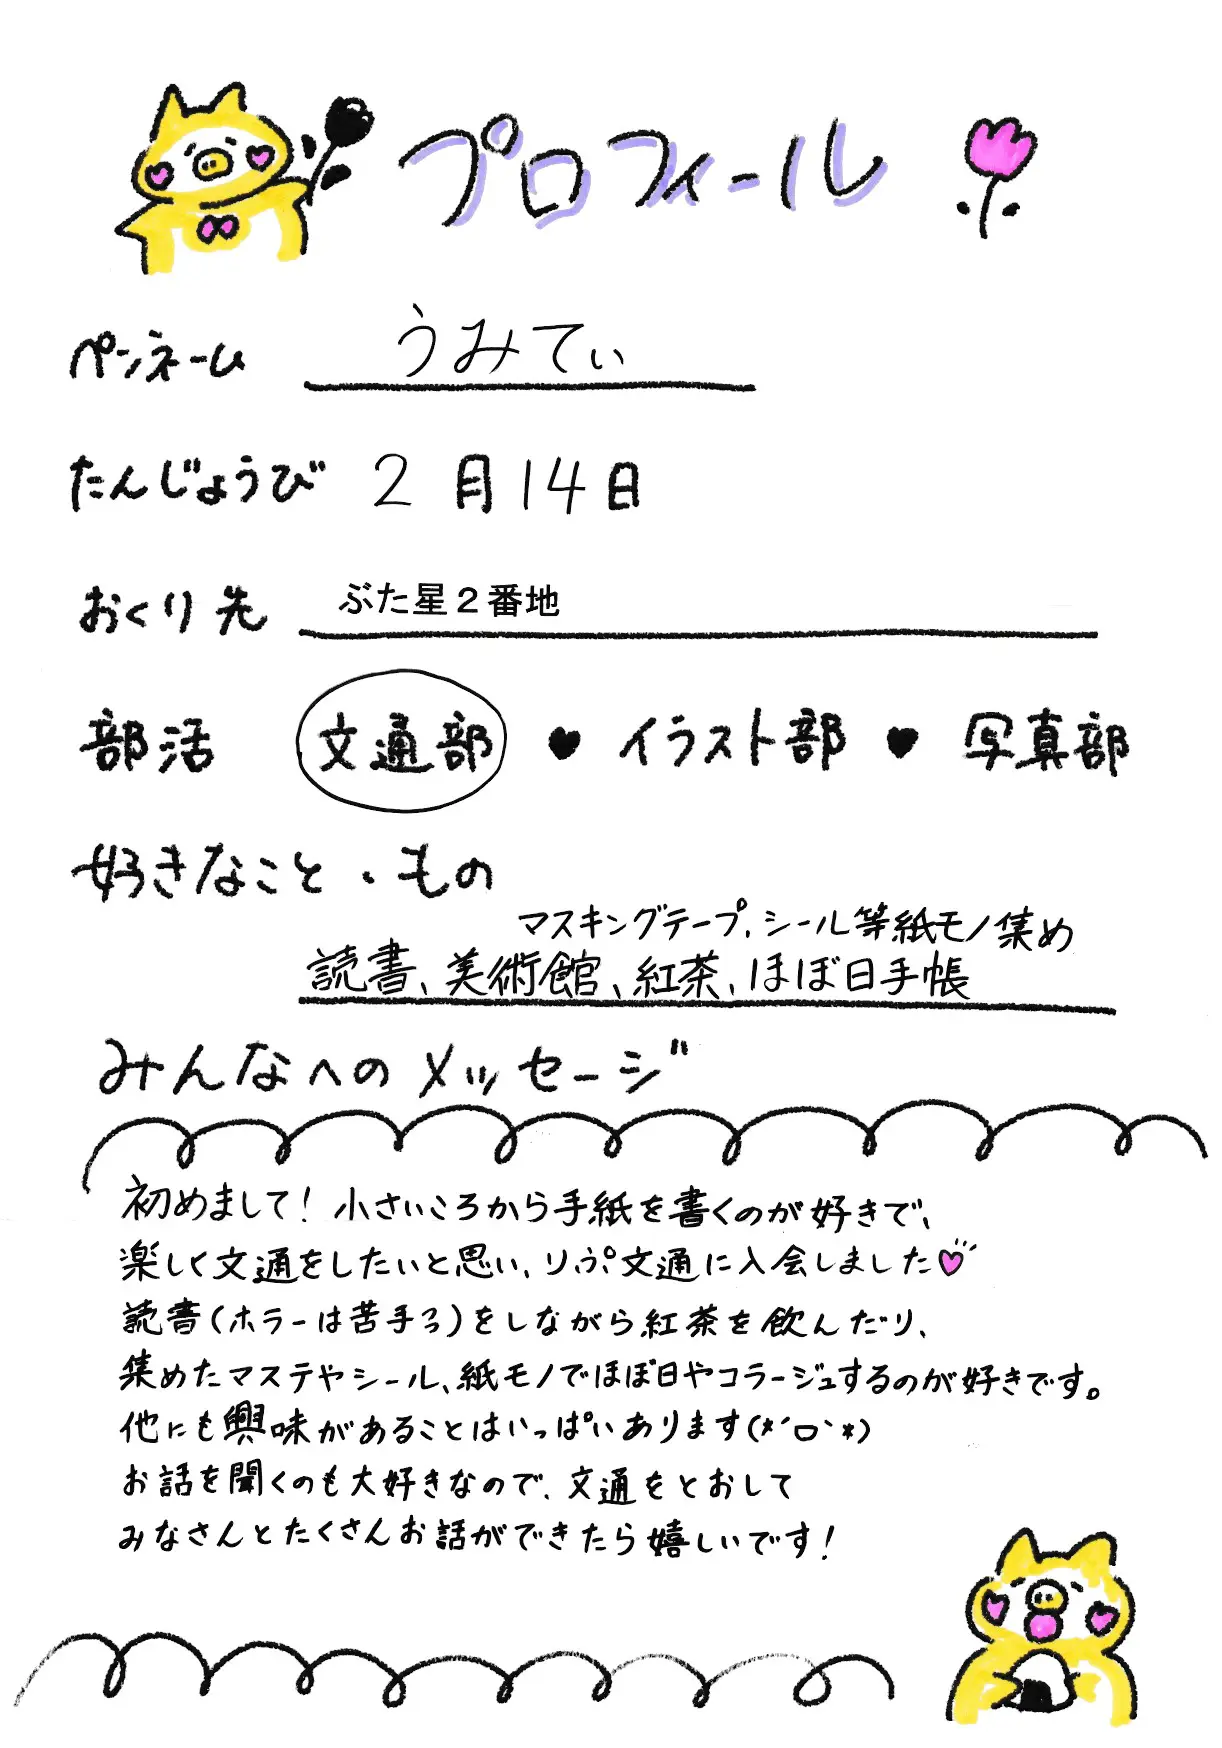 プロフィール
ペンネーム うみてぃ
たんじょうび 2月14日
おくり先 ぶた星2番地
部活 文通部 ♥ イラスト部 ♥ 写真部
好きなこと・もの
マスキングテープ、シール等紙モノ集め
読書、美術館、紅茶、ほぼ日手帳
みんなへのメッセージ
初めまして！小さいころから手紙を書くのが好きで、
楽しく文通をしたいと思い、りぷ文通に入会しました♡
読書(ホラーは苦手ろ)をしながら紅茶を飲んだり、
集めたマステやシール、紙モノでほぼ日やコラージュするのが好きです。
他にも興味があることはいっぱいあります(*´ロ`*)
お話を聞くのも大好きなので、文通をとおして
みなさんとたくさんお話ができたら嬉しいです！